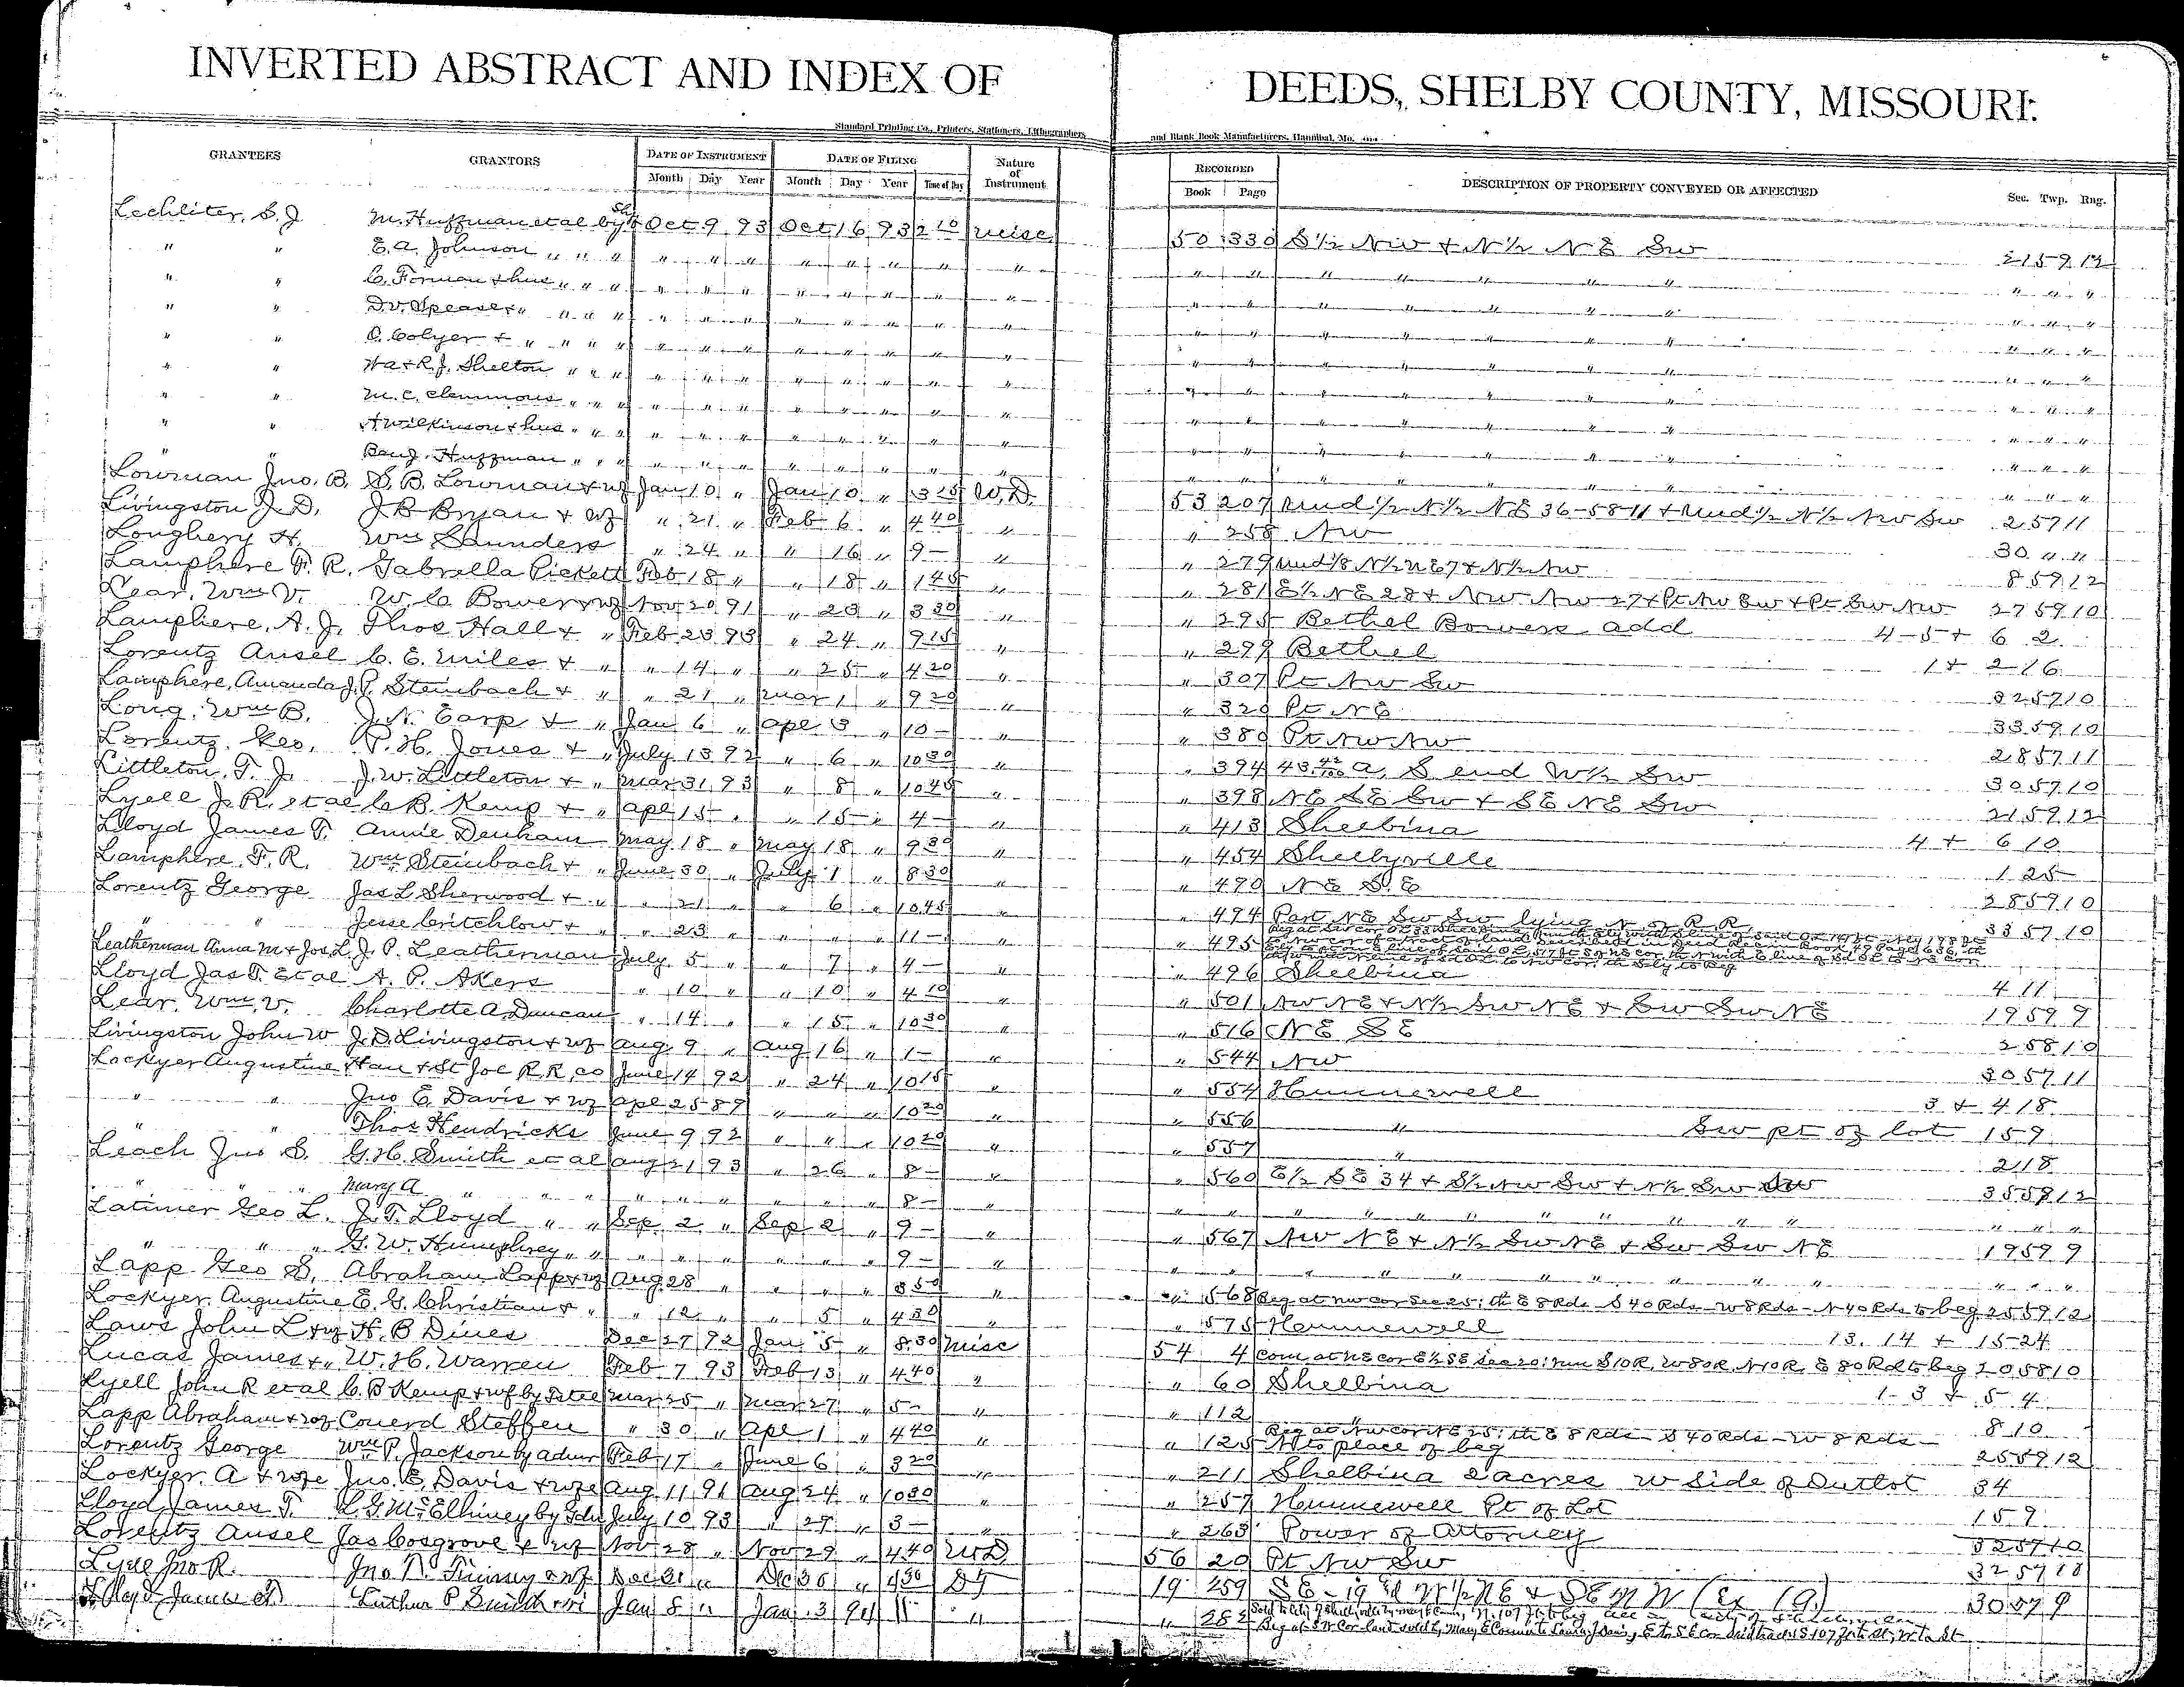 INVERTED ABSTRACT AND INDEX OF DEEDS, SHELBY COUNTY, MISSOURI.
Standard Printing Co., Printers, Stationers, Lithographers and Blank Book Manufacturers, Hannibal, Mo.
GRANTEES GRANTORS DATE OF INSTRUMENT DATE OF FILING Nature of Instrument RECORDED DESCRIPTION OF PROPERTY CONVEYED OR AFFECTED Sec. Twp. Rng.
Month Day Year Month Day Year Time of Day Book Page
Lechliter, S. J. M. Huffman et al by Sh Oct 9 93 Oct 16 93 2 10 Misc 50 330 S ½ NW & N ½ NE SW 21 59 12
" " E. A. Johnson " " " " " " " " " " " " " " " " " " " "
" " C. Forman & hus " " " " " " " " " " " " " " " " " " "
" " D. V. Spease & " " " " " " " " " " " " " " " " " " " "
" " C. Colyer & " " " " " " " " " " " " " " " " " " " "
" " Wa & R. J. Shelton " " " " " " " " " " " " " " " " " " "
" " M. C. Clemmons " " " " " " " " " " " " " " " " " " "
" " A Wilkinson & hus " " " " " " " " " " " " " " " " " " "
" " Benj. Huffman " " " " " " " " " " " " " " " " " " "
Lowman Jno. B. S. B. Lowman & wf Jan 10 " Jan 10 " 3 15 W. D. 53 207 Und ½ N ½ NE 36-58-11 & Und ½ N ½ NW SW 2 57 11
Livingston J. D. J B Bryan & wf " 21 " Feb 6 " 4 40 " " 258 NW 30 " "
Loughery H. Wm Saunders " 24 " " 16 " 9 - " " 279 Und 1/8 N ½ NE 7 & N ½ NW 8 59 12
Lamphere F. R. Gabrella Pickett Feb 18 " " 18 " 1 45 " " 281 E ½ NE 28 & NW NW 27 & Pt NW SW & Pt SW NW 27 59 10
Lear, Wm V. W. C. Bower & wf Nov 20 91 " 23 " 3 30 " " 295 Bethel Bowers add 4-5 & 6 2
Lamphere, A. J. Thos Hall & " Feb 23 93 " 24 " 9 15 " " 299 Bethel 1 & 2 16
Lorentz Ansel C. E. Miles & " " 14 " " 25 " 4 20 " " 307 Pt NW SW 32 57 10
Lamphere, Amanda J. P. Steinbach & " " 21 " Mar 1 " 9 20 " " 320 Pt NE 33 59 10
Long, Wm B. J. N. Earp & " Jan 6 " Apl 3 " 10 - " " 380 Pt NW NW 28 57 11
Lorentz, Geo. P. H. Jones & " July 13 92 " 6 " 10 30 " " 394 43 42/100 a. S end W ½ SW 30 57 10
Littleton, T. J. J. W. Littleton & " Mar 31 93 " 8 " 10 45 " " 398 NE SE SW & SE NE SW 21 59 12
Lyell J. R. et al C. B. Kemp & " Apl 15 " " 15 " 4 - " " 413 Shelbina 4 & 6 10
Lloyd James T. Annie Denham May 18 " May 18 " 9 30 " " 454 Shelbyville 1 25
Lamphere, F. R. Wm Steinbach & " June 30 " July 1 " 8 30 " " 490 NE SE 28 59 10
Lorentz George Jas L Sherwood & " " 21 " " 6 " 10 45 " " 494 Part NE SW SW lying N of R R 33 57 10
" " Jesse Critchlow & " " 23 " " " " 11 - " " 495
Leatherman Anna M & Jos L. J. P. Leatherman July 5 " " 7 " 4 - " " 496 Shelbina 4 11
Lloyd Jas T. et al A. P. Akers " 10 " " 10 " 4 10 " " 501 NW NE & N ½ SW NE & SW SW NE 19 59 9
Lear, Wm. V. Charlotte A. Duncan " 14 " " 15 " 10 30 " " 516 NE SE 2 58 10
Livingston John W J. D. Livingston & wf Aug 9 " Aug 16 " 1 - " " 544 NW 30 57 11
Lockyer Augustine Han & St Joe R. R. Co June 14 92 " 24 " 10 15 " " 554 Hunnewell 3 & 4 18
" " Jno E. Davis & wf Apl 25 89 " " " 10 20 " " 556 " SW pt of lot 15 9
" " Thos Hendricks June 9 92 " " " 10 20 " " 557 " 2 18
Leach Jno S. G. H. Smith et al Aug 21 93 " 26 " 8 - " " 560 E ½ SE 34 & S ½ NW SW & N ½ SW SW 35 58 12
" " " Mary A " " " " " " " " " 8 - " " " " " " " " " " " " "
Latimer Geo L. J. T. Lloyd " " Sep 2 " Sep 2 " 9 - " " 567 NW NE & N ½ SW NE & SW SW NE 19 59 9
" " " G. W. Humphrey " " " " " " " " 9 - " " " " " " " " " " "
Lapp Geo S. Abraham Lapp & wf Aug 28 " " " " 3 50 " " 568 Beg at NW cor Sec 25; th E 8 Rds - S 40 Rds - W 8 Rds - N 40 Rds to beg 25 59 12
Lockyer Augustine E. G. Christian & " " 12 " " 5 " 4 30 " " 575 Hunnewell 13. 14 & 15-24
Laws John L & wf H. B Dines Dec 27 92 Jan 5 " 8 30 Misc 54 4 Com at NE cor E ½ SE Sec 20; run S 10 R, W 80 R, N 10 R, E 80 Rd to beg 20 58 10
Lucas James & " W. H. Warren Feb 7 93 Feb 13 " 4 40 " " 60 Shelbina 1-3 & 5 4
Lyell John R et al C. B Kemp & wf by Mar 25 " Mar 27 " 5 - " " 112 " 8 10
Lapp Abraham & wf Couerd Steffen " 30 " Apl 1 " 4 40 " " 125 Beg at NW cor NE 25; th E 8 Rds - S 40 Rds - W 8 Rds - N to place of beg 25 59 12
Lorentz George Wm P. Jackson by admr Feb 17 " June 6 " 3 20 " " 211 Shelbina 2 acres W side of Outlot 34
Lockyer. A & wfe Jno. E. Davis & wfe Aug 11 91 Aug 24 " 10 30 " " 257 Hunnewell Pt of Lot 15 9
Lloyd James T. L. G. McElhiney by Gdn July 10 93 " 29 " 3 - " " 263 Power of Attorney 32 57 10
Lorentz Ansel Jas Cosgrove & wf Nov 28 " Nov 29 " 4 40 W D 56 20 Pt NW SW 32 57 10
Lyell Jno R. Jno T. & wf Dec 21 " Dec 30 " 4 30 D T 19 259 SE - 19 W ½ NE & SE NW (Ex 1 a) 30 57 9
Lloyd James T. Luther P Smith & wi Jan 8 " Jan 3 94 11 " " 282
Beg at SW Cor land sold by Mary E to Laura J Davis, E to SE Cor said tract S 107 ft to St, W to St